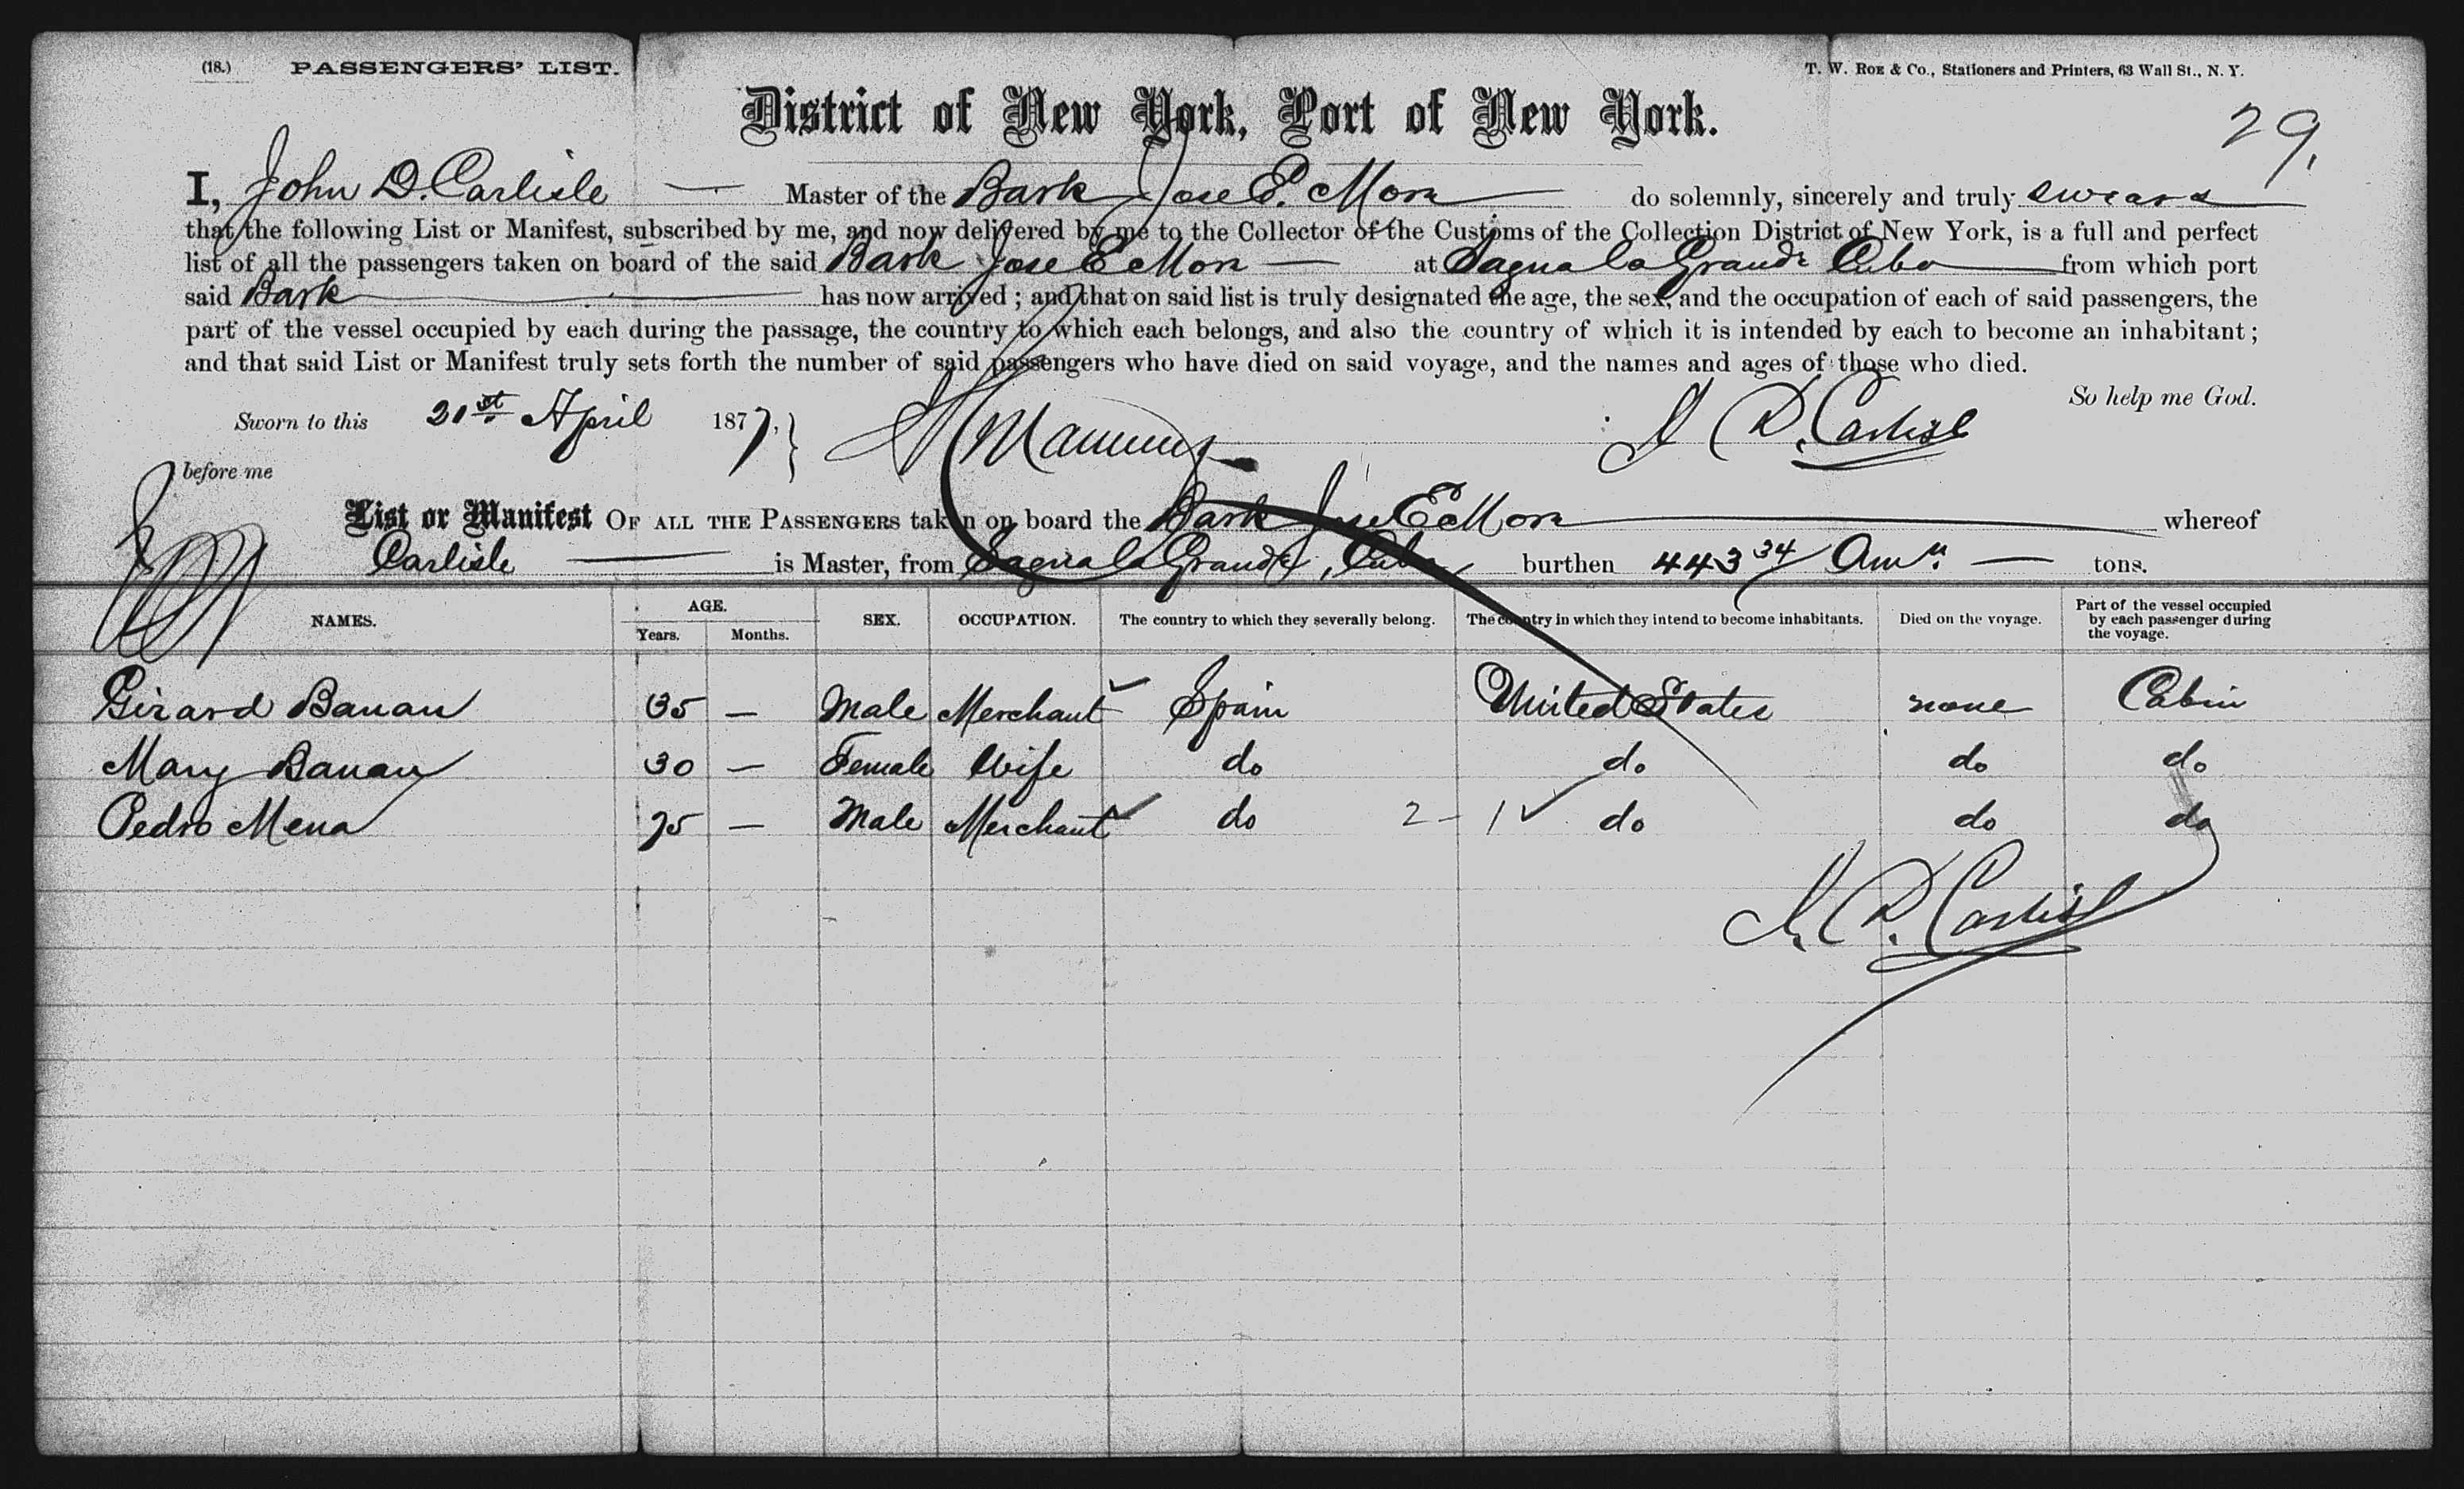 (18.) PASSENGERS' LIST. T. W. ROE & Co., Stationers and Printers, 63 Wall St., N. Y.
District of New York, Port of New York.
29.
I, John D. Carlisle Master of the Bark Jose E. Mora do solemnly, sincerely and truly swears
that the following List or Manifest, subscribed by me, and now delivered by me to the Collector of the Customs of the Collection District of New York, is a full and perfect
list of all the passengers taken on board of the said Bark Jose E Mora at Sagua la Grande Cuba from which port
said Bark has now arrived ; and that on said list is truly designated the age, the sex, and the occupation of each of said passengers, the
part of the vessel occupied by each during the passage, the country to which each belongs, and also the country of which it is intended by each to become an inhabitant ;
and that said List or Manifest truly sets forth the number of said passengers who have died on said voyage, and the names and ages of those who died.
So help me God.
Sworn to this 21st April 1877, J D. Carlisle
before me
List or Manifest OF ALL THE PASSENGERS taken on board the Bark Jose E Mora whereof
Carlisle is Master, from Sagua la Grande, Cuba burthen 443 34 Amn. tons.
NAMES. AGE. Years. Months. SEX. OCCUPATION. The country to which they severally belong. The country in which they intend to become inhabitants. Died on the voyage. Part of the vessel occupied by each passenger during the voyage.
Girard Banan 35 — Male Merchant Spain United States none Cabin
Mary Banan 30 — Female Wife do do do do
Pedro Mena 25 — Male Merchant do 2 - 1 do do do
J. D. Carlisle